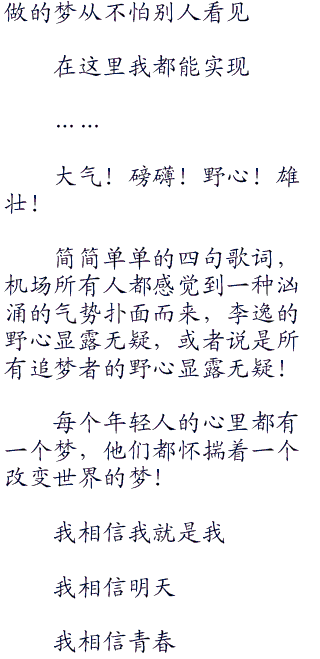 做的梦从不怕别人看见
在这里我都能实现
……
大气！磅礴！野心！雄
壮！
简简单单的四句歌词，
机场所有人都感觉到一种汹
涌的气势扑面而来，李逸的
野心显露无疑，或者说是所
有追梦者的野心显露无疑！
每个年轻人的心里都有
一个梦，他们都怀揣着一个
改变世界的梦！
我相信我就是我
我相信明天
我相信青春